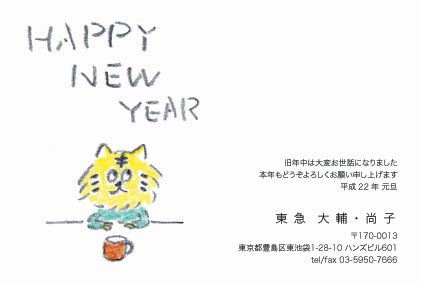 HAPPY
NEW
YEAR
旧年中は大変お世話になりました
本年もどうぞよろしくお願い申し上げます
平成 22 年 元旦
東 急 大 輔・尚 子
〒170-0013
東京都豊島区東池袋1-28-10 ハンズビル601
tel/fax 03-5950-7666